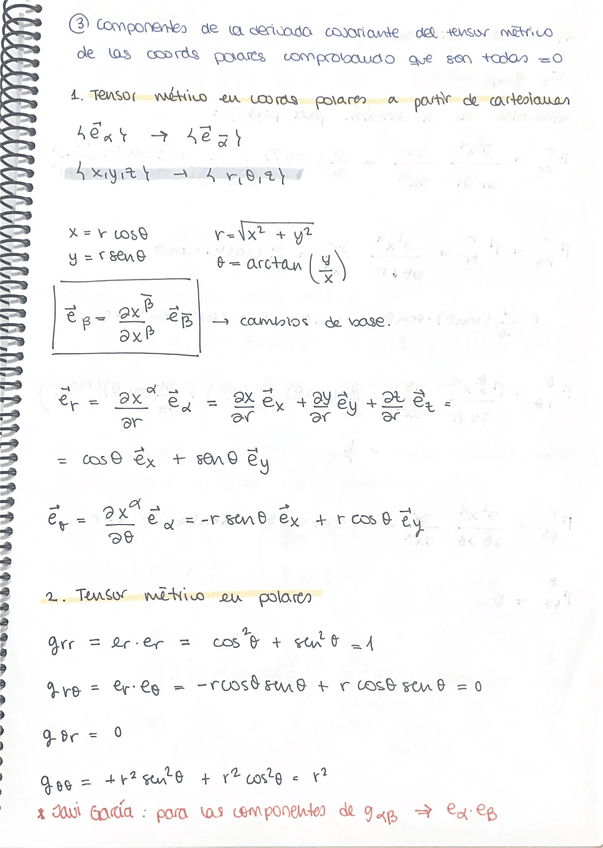 ③ componentes de la derivada covariante del tensor métrico
de las coords polares comprobando que son todas =0
1. Tensor métrico en coords polares a partir de cartesianas
{e⃗α} → {e⃗ᾱ}
{x,y,z} → {r,θ,z}
x = r cosθ r=√(x² + y²)
y = r senθ θ = arctan (y/x)
e⃗β = ∂x^β̄/∂x^β e⃗β̄ → cambios de base.
e⃗r = ∂x^α/∂r e⃗α = ∂x/∂r e⃗x + ∂y/∂r e⃗y + ∂z/∂r e⃗z =
= cosθ e⃗x + senθ e⃗y
e⃗θ = ∂x^α/∂θ e⃗α = -r senθ e⃗x + r cosθ e⃗y
2. Tensor métrico en polares
grr = er·er = cos²θ + sen²θ = 1
grθ = er·eθ = -rcosθsenθ + r cosθ senθ = 0
gθr = 0
gθθ = +r² sen²θ + r² cos²θ = r²
* Javi García: para las componentes de gαβ ⇒ eα·eβ